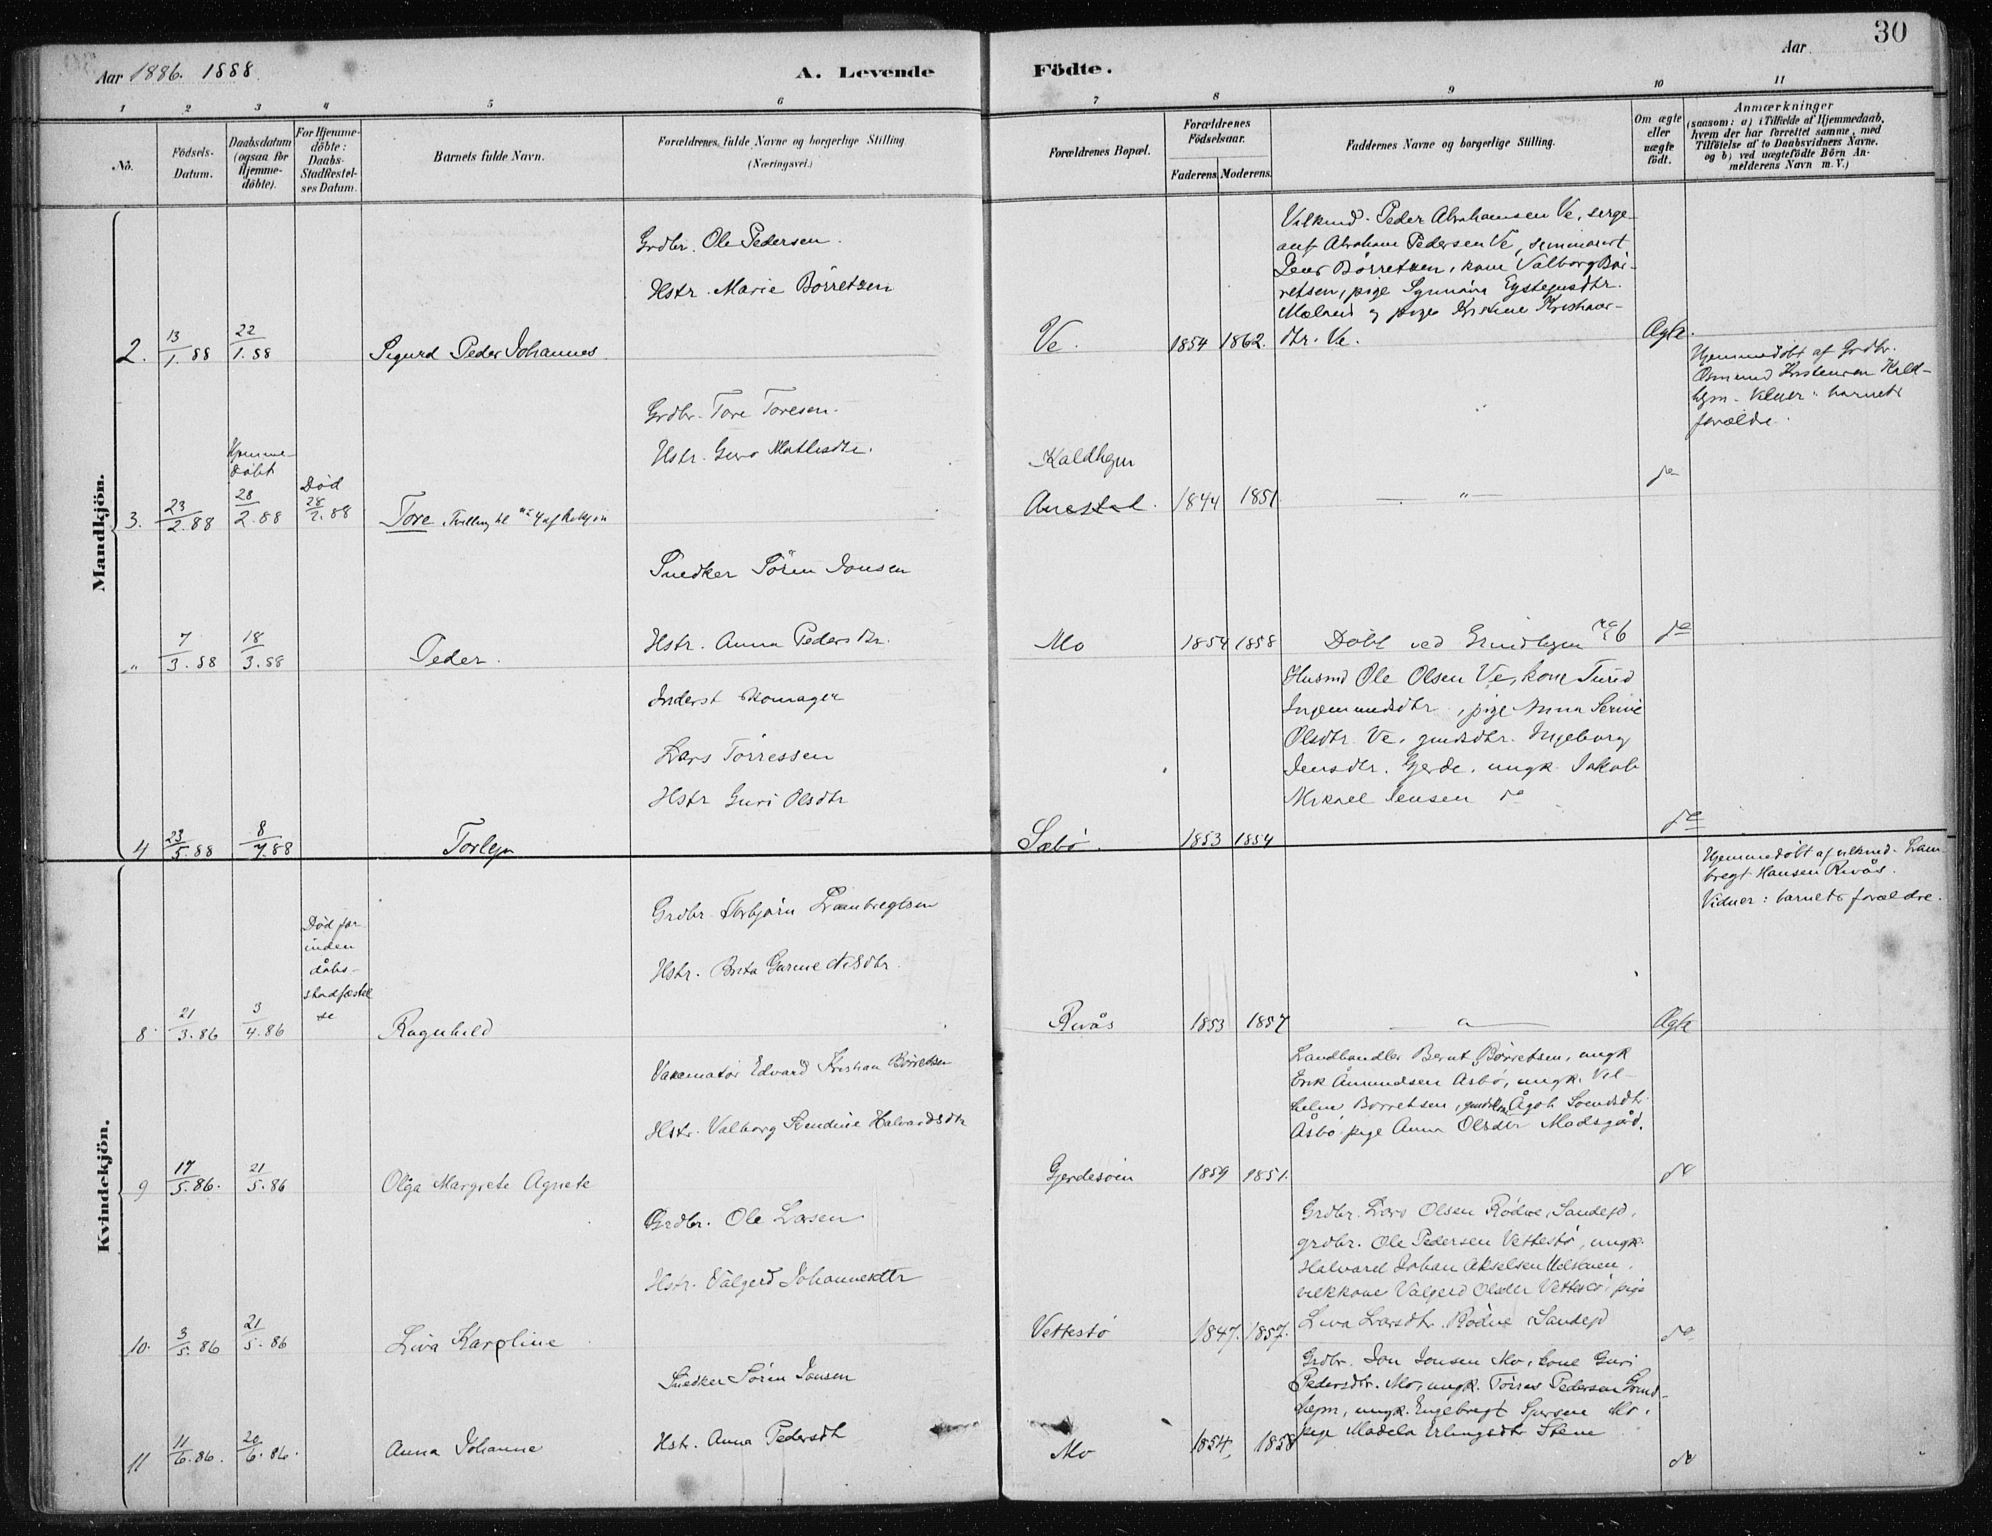 30
Aar 1886. 1888.
A. Levende
Födte.
Aar
1 2 3 4 5 6 7 8 9 10 11
No.
Födsels-
Datum.
Daabsdatum
(ogsaa for
Hjemme-
döbte).
For Hjemme-
döbte:
Daabs-
Stadfæstel-
ses Datum.
Barnets fulde Navn.
Forældrenes fulde Navne og borgerlige Stilling
(Næringsvei.)
Forældrenes Bopæl.
Forældrenes
Födselsaar.
Faderens. Moderens.
Faddernes Navne og borgerlige Stilling.
Om ægte
eller
uægte
födt.
Anmærkninger
(saasom: a) i Tilfælde af Hjemmedaab,
hvem der har forrettet samme, med
Tilföielse af to Daabsvidners Navne.
og b) ved uægtefödte Börn An-
melderens Navn m. V.)
Mandkjön.
2. 13/1.88 22/1.88 Sigurd Peder Johannes
Grdbr. Ole Pedersen.
Hstr. Marie Börretsen
Ve. 1854 1862.
Peder Abrahamsen Ve, serge-
ant Abraham Pedersen Ve, seminarist
Börretsen, kone Valborg Bör-
retsen, pige
Mæland og pige Kristine
dtr. Ve.
Ægte.
3. 23/2.88
Hjemme-
döbt
28/2.88
Död
28/2.88
Tore. Tvilling til
Grdbr. Tore Toresen.
Hstr. Guro
Kaldheim
1844 1851.
— " —
do
Hjemmedöbt af Grdbr.
Osmund Kristensen Kald-
heim. Vidner: barnets
forældre.
" 7/3.88 18/3.88 Peder.
Snedker Sören Jonsen
Hstr. Anna Pedersdtr.
Mo 1854 1858
Döbt ved Grindheim No 6
do
4 23/5.88 8/7.88 Torleif
Inderst Skomager
Lars Törressen
Hstr Guri Olsdtr
Sæbö. 1853 1854
Husmd Ole Olsen Ve, kone Turid
Ingemundsdtr, pige Anna Serine
Olsdtr. Ve, gmdsdtr. Ingeborg
Jensdtr. Gjerde, ungk. Jakob
Mikael Jensen do
do
Kvindekjön.
8. 21/3.86 3/4.86
Död for-
inden
dåbs-
stadfæstel
se
Ragnhild
Grdbr. Torbjörn Lambregtsen
Hstr. Brita
Risås 1853 1857
— " —
Ægte
Hjemmedöbt af Lam-
bregt Hansen Risås.
Vidner: barnets forældre.
9 17/5.86. 21/5.86 Olga Margrete Agnete
Vaccinatör Edvard Kristian Börretsen
Hstr. Valborg Halvardsdtr
1859 1851.
Landhandler Bernt Börretsen, ungk
Erik Åmundsen Åsbö, ungk. Vil-
helm Börretsen, Svendsdtr.
Åsbö, pige Anna Olsdtr Madsgård.
do
10. 3/5.86 21/5.86 Liva Karoline
Grdbr. Ole Larsen
Hstr. Valgerd Johannesdtr
Vettestö 1847. 1857.
Grdbr. Lars Olsen Rödne, Sandejd,
grdbr. Ole Pedersen Vettestö, ungk.
Halvard Johan Akselsen
Valgerd Olsdtr Vettestö, pige
Liva Larsdtr. Rödne Sandejd
do.
11 11/6.86. 20/6.86. Anna Johanne
Snedker Sören Jonsen
Hstr. Anna Pedersdtr
Mo 1854, 1858
Grdbr. Jon Jonsen Mo, kone Guri
Pedersdtr. Mo, ungk. Törres Pedersen Grind-
heim, ungk. Engebregt Mo,
pige Madela Erlingsdtr Stene
do